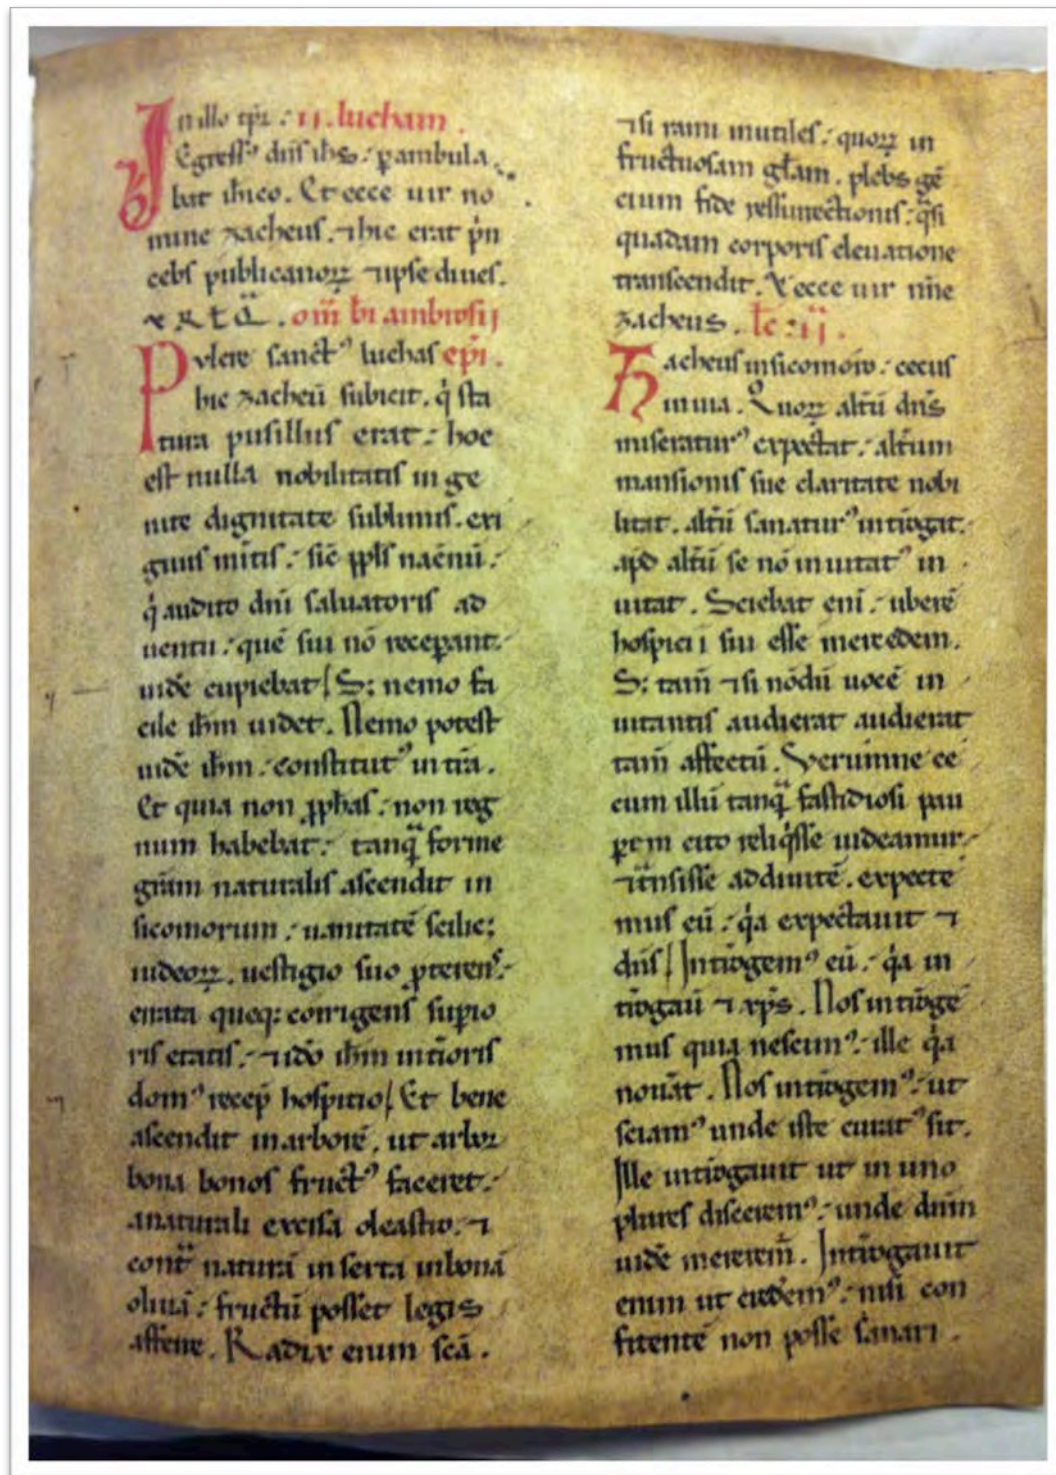 In illo tp̄r : ii. lucham .
Egressꝰ dn̄s ih̄s : p̱ambula
bat ih̄ico. Et ecce uir no
mine zacheus. ⁊ hic erat p̍n
cebs publicanoꝝ ⁊ ipse diues.
⁊ R t Q̄ . om̄ bi ambrosij
Pvlcre sanct̄ꝰ luchas ep̄i .
hic zacheū subicit. q̍ sta
tura pusillus erat : hoc
est nulla nobilitatis in ge
nite dignitate sublimis. exi
guus mītis : sic̄ pp̄ls nac̄nū :
q̍ audito dn̄i saluatoris ad
uentu : quē sui nō recep̱ant :
uidē cupiebat / S: nemo fa
cile ih̄m uidet . Nemo potest
uidē ih̄m : constitutꝰ in t̄ra .
Et quia non pp̄has : non leg
num habebat : tanq̄ forme
gr̄am naturalis ascendit in
sicomorum : uanitatē scilic;
iudeoꝝ . uestigio suo ꝓterens :
errata queq; corrigens sup̱io
ris etatis : ⁊ idō ih̄m int̄ioris
domꝰ recep̄ hospitio / Et bene
ascendit in arborē , ut arboꝛ
bona bonos fruct̄ꝰ faceret :
a naturali excisa oleastro : ⁊
cont̄ naturā inserta in bonā
oliuā : fructū posset legis
afferre . Radix enim sc̄a .
⁊ si rami inutiles : quoꝝ in
fructuosam gl̄am . plebs gē
cium fide ressurrectionis : q̍si
quadam corporis eleuatione
transcendit . ⁊ ecce uir nīe
zacheus . lc̄ : ii .
Zacheus in sicomoro : cecus
in uia . Quoꝝ alt̄ū dn̄s
miseraturꝰ expectat : alt̄um
mansionis sue claritate nobi
litat . alt̄ū sanaturꝰ int̄rogat :
apd̄ alt̄ū se nō inuitatꝰ in
uitat . Sciebat enī : uberē
hospicii sui esse mercedem .
S: tam̄ ⁊ si nōdū uocē in
uitantis audierat audierat
tam̄ affectū . Verumne ce
cum illū tanq̄ fastidiosi pau
p̱em cito reliq̍sse uideamur :
⁊ t̄nsisse ad diuitē . expecte
mus eū : q̍a expectauit ⁊
dn̄s / Int̄rogemꝰ eū : q̍a in
t̄rogauī ⁊ xp̄s . Nos int̄roge
mus quia nescimꝰ : ille q̍a
nouāt . Nos int̄rogemꝰ : ut
sciamꝰ unde iste curatꝰ sit .
Ille int̄rogauit ut in uno
plures disceremꝰ : unde dn̄m
uidē mererem̄ . Int̄rogauit
enim ut crederemꝰ : nisi con
fitentē non posse sanari .